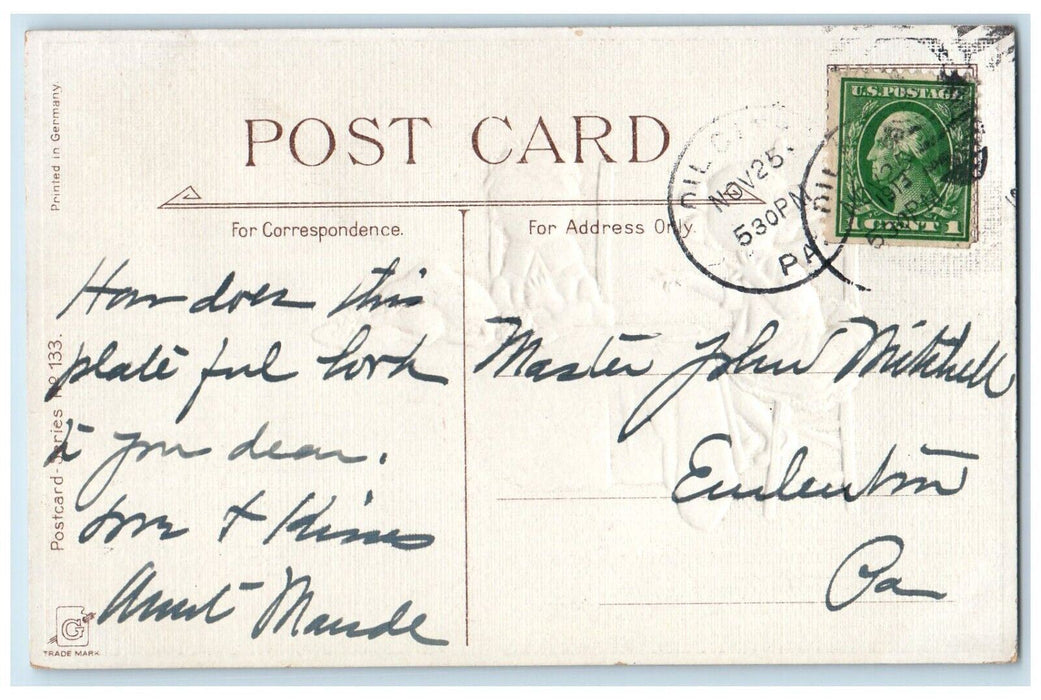 POST CARD
Printed in Germany
For Correspondence.
For Address Only.
OIL CITY
NOV 25
530PM
PA.
U.S. POSTAGE
1 CENT 1
How does this
plate ful look
to you dear.
Love + Kisses
Aunt Maude
Master John Mitchell
Emlenton
Pa
Postcard-Series No 133.
G
TRADE MARK